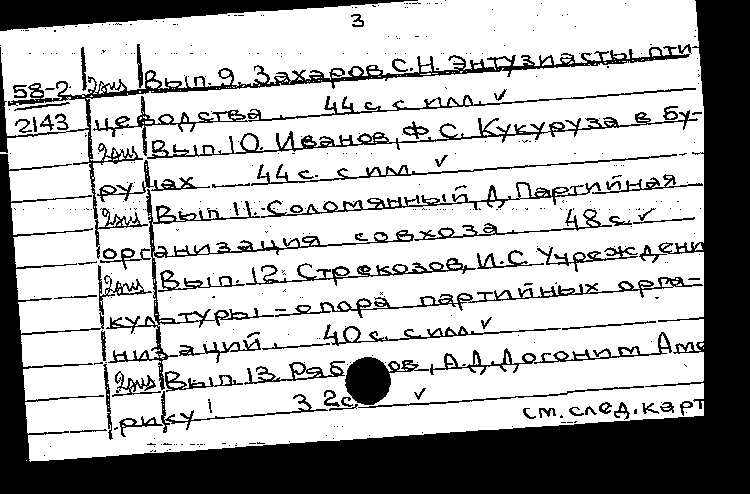 3
58-2 2экз Вып. 9. Захаров, С.Н. Энтузиасты пти-
2143 цеводства. 44 с. с илл. ✓
2экз Вып. 10. Иванов, Ф.С. Кукуруза в бу-
ртах. 44 с. с илл. ✓
2экз Вып. 11. Соломянный, Д. Партийная
организация совхоза. 48 с. ✓
2экз Вып. 12. Стрекозов, И.С. Учреждени
культуры - опора партийных орга-
низаций. 40 с. с илл. ✓
2экз Вып. 13. А.Д. Догоним Аме
рику! 32 с. ✓
см. след. карт